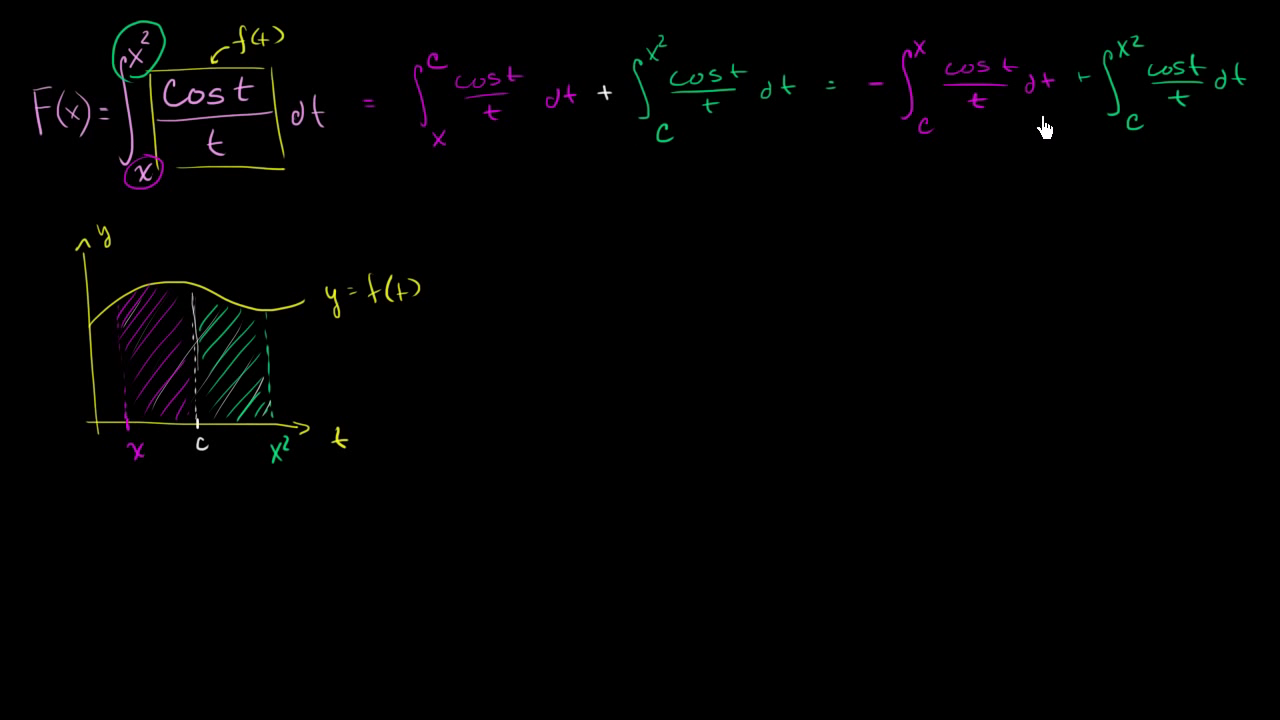 F(x) = ∫_x^{x²} cos t / t dt = ∫_x^c cos t / t dt + ∫_c^{x²} cos t / t dt = - ∫_c^x cos t / t dt + ∫_c^{x²} cos t / t dt
f(t)
y
y = f(t)
x c x² t